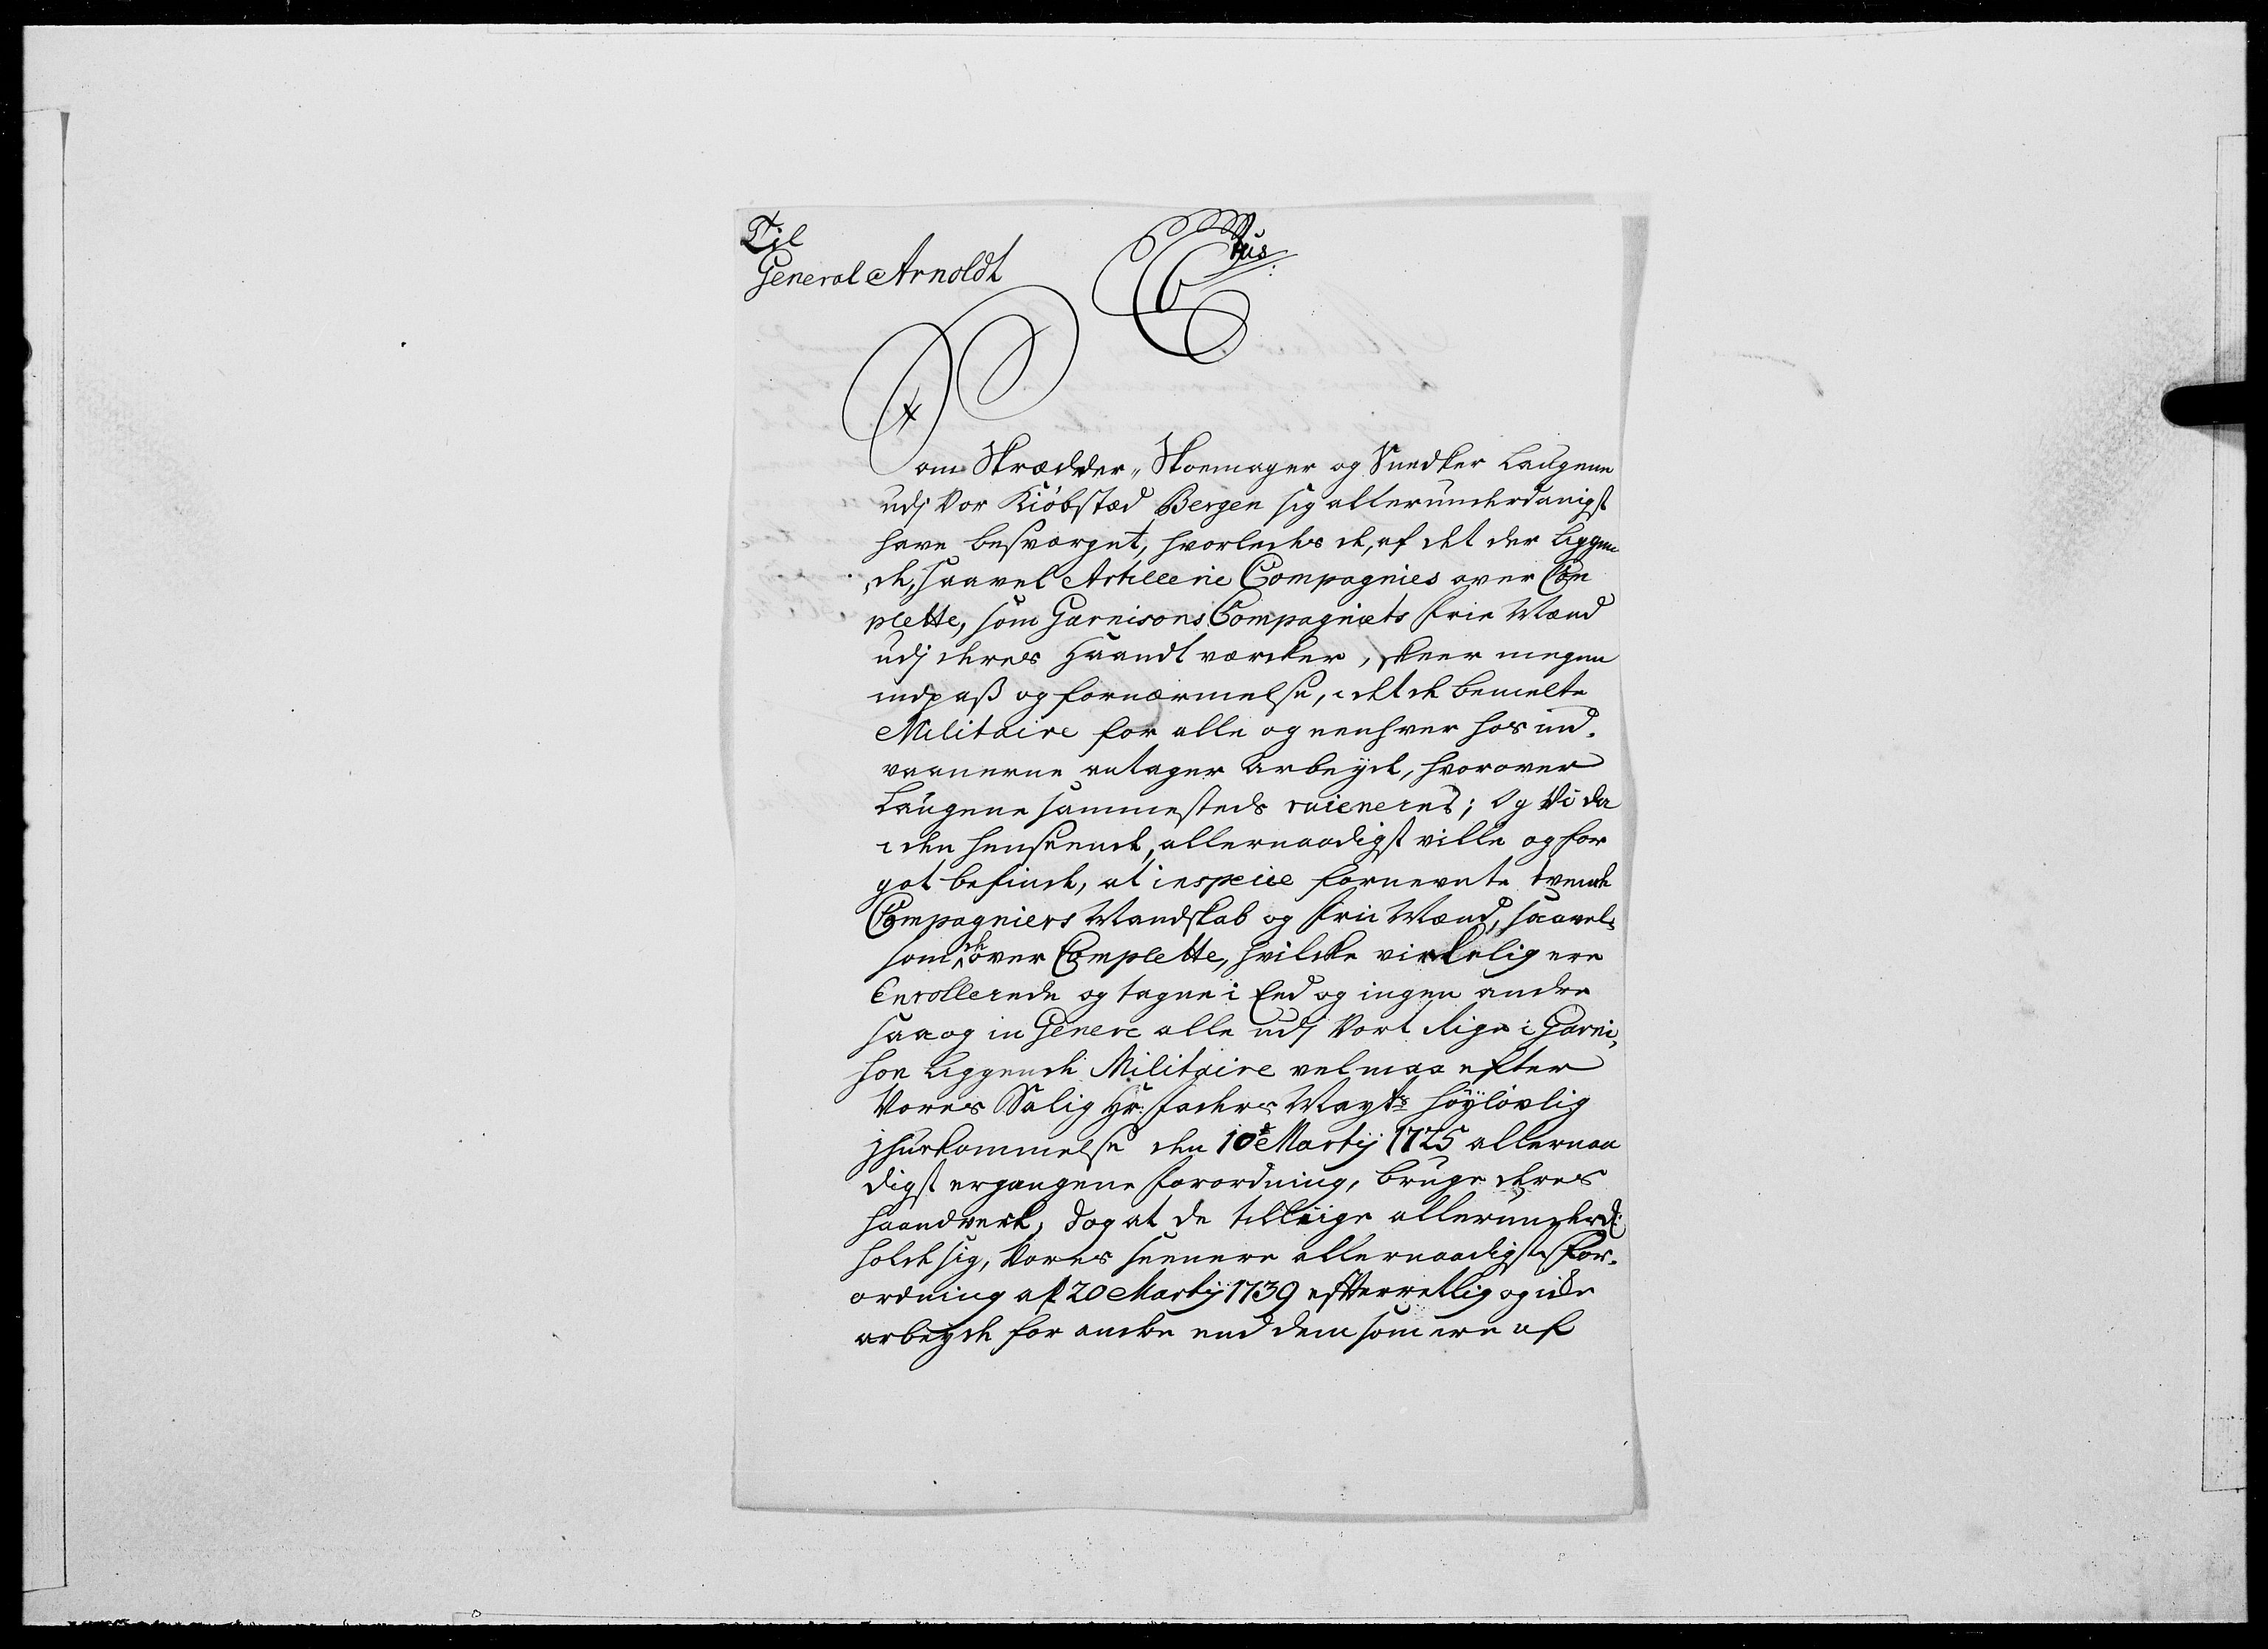 Til
General Arnoldt
C6tus
Som Skrædder, Skoemager og Snedker Laugene
udj Vor Kiöbstæd Bergen sig allerunderdanigst
have besværget, hvorledes de, af det der liggen
de, saavel Artillerie Compagnies over Com
plette, som Garnisons Compagniets frie Mænd
udj deres Haandtværcker, skeer megen
indpaß og fornærmelse, i det de bemelte
Militaire for alle og eenhver hos ind-
vaanerne antager Arbeyde, hvorover
Laugene sammesteds ruieneres; Og Vi da
i den henseende, allernaadigst ville og for
got befinde, at in specie fornevnte tvende
Compagniers Mandskab og frie Mænd, saavel-
som de over Complette, hvilcke virkelig ere
Enrollerede og tagne i Eed og ingen andre
saa og in Genere alle udj Vort Rige i Garni,
son liggende Militaire vel maa efter
Vores Salig Hr: Faders Mayts höylovlig
jhukommelse den 10de Martij 1725 allernaa
digst ergangene forordning, bruge deres
haandverk, dog at de tilliige allerunderd:
holde sig, Vores seenere allernaadigste For-
ordning af 20 Martij 1739 efterretlig og icke
arbeyde for andre end dem som ere af